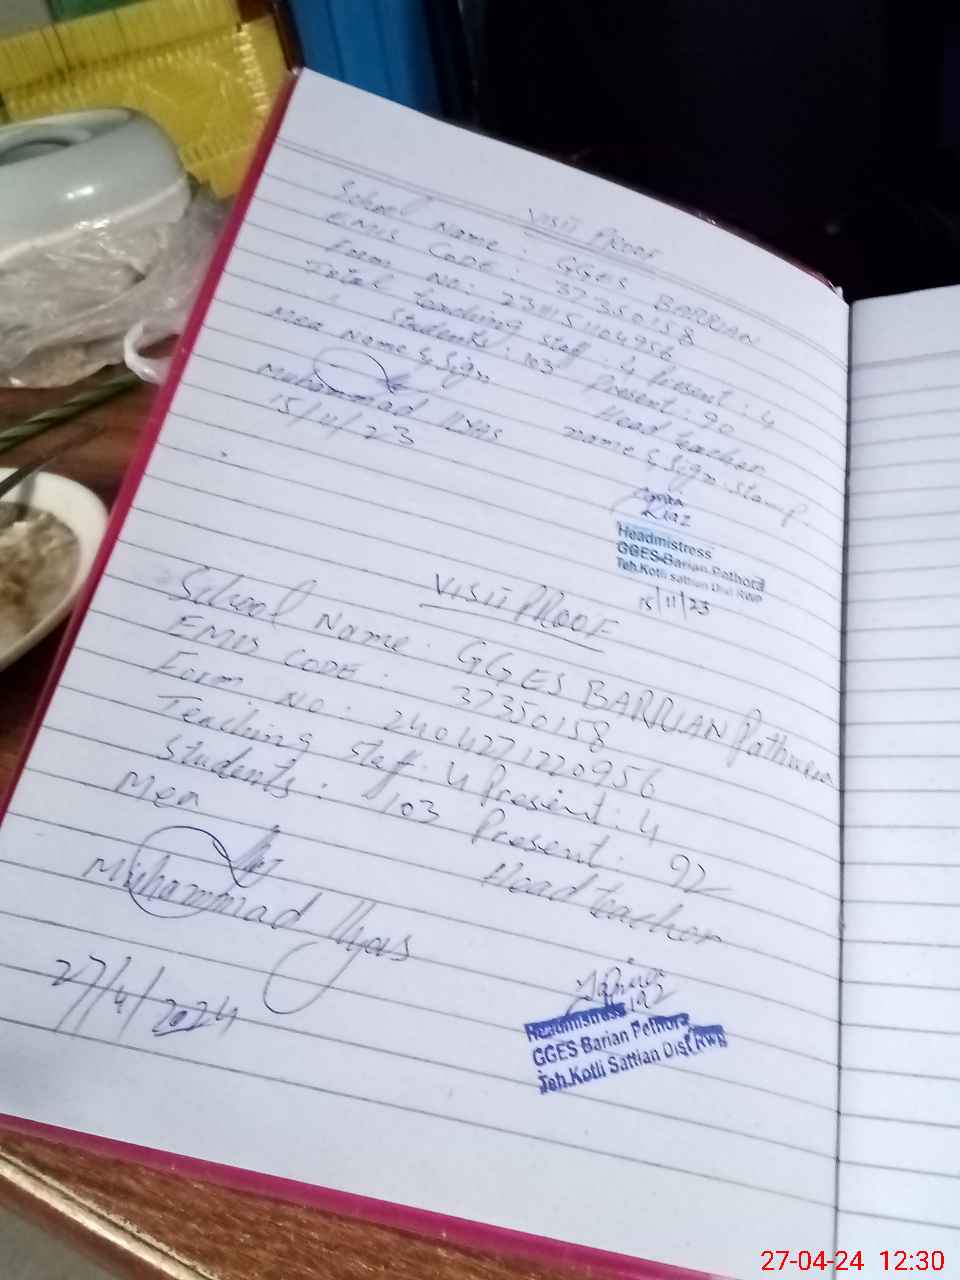 VISIT PROOF
School Name : GGES BARRIAN
EMIS CODE : 37350158
Form No: 2311151104956
Total teaching staff : 4 Present : 4
Students : 103 Present : 90
Mea Name & Sign Head teacher
name & sign. stamp.
Muhammad Ilyas
15/11/23
Riaz
Headmistress
GGES Barian Pathora
Teh.Kotli Sattian Dist RWP
15/11/23
VISIT PROOF
School Name : GGES BARRIAN
EMIS CODE : 37350158
Form No : 2404271220956
Teaching Staff : 4 Present : 4
Students : 103 Present : 92
Mea Head teacher
Muhammad Ilyas
27/4/2024
Headmistress
GGES Barian Pathora
Teh.Kotli Sattian Dist RWP
27-04-24 12:30